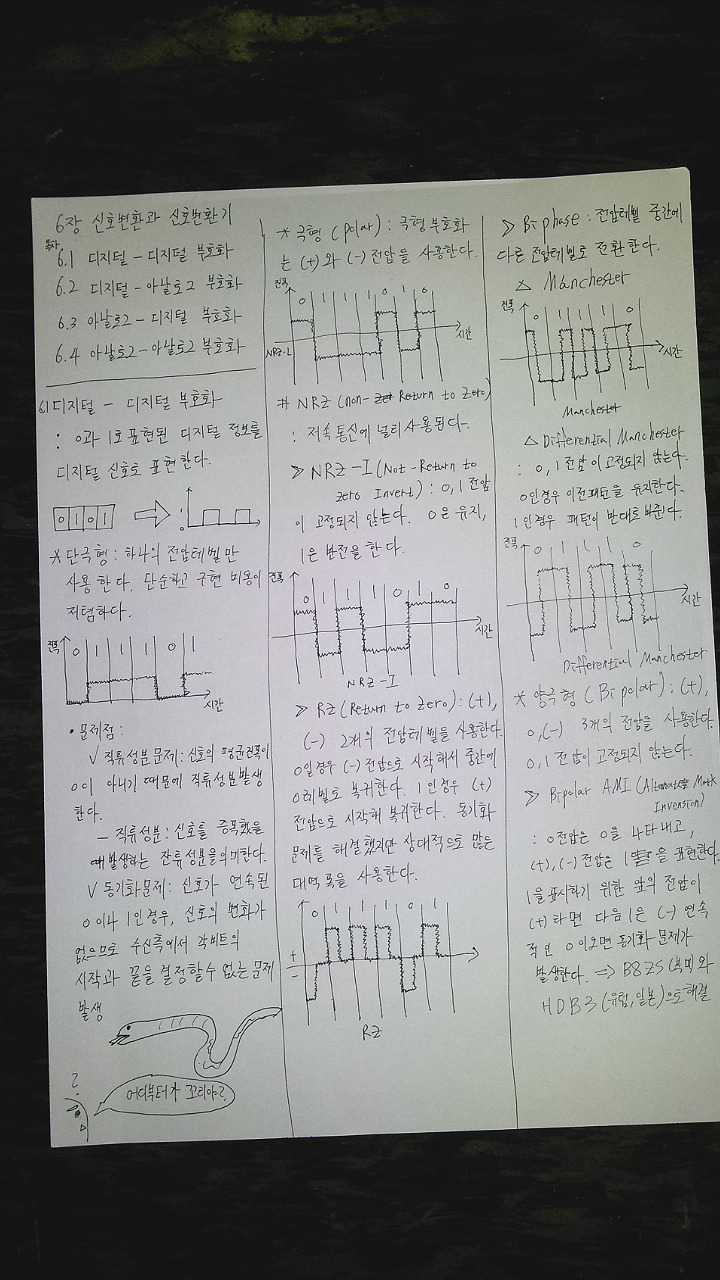 6장 신호변환과 신호변환기
목차
6.1 디지털 - 디지털 부호화
6.2 디지털 - 아날로그 부호화
6.3 아날로그 - 디지털 부호화
6.4 아날로그 - 아날로그 부호화
6.1 디지털 - 디지털 부호화
: 0과 1로 표현된 디지털 정보를
디지털 신호로 표현한다.
0 1 0 1
* 단극형 : 하나의 전압레벨만
사용한다. 단순하고 구현 비용이
저렴하다.
진폭
0 1 1 1 0 1
시간
• 문제점 :
√ 직류성분 문제 : 신호의 평균진폭이
0이 아니기 때문에 직류성분발생
한다.
- 직류성분 : 신호를 증폭했을
때 발생하는 잔류성분을의미한다.
√ 동기화문제 : 신호가 연속된
0이나 1인 경우, 신호의 변화가
없으므로 수신측에서 각비트의
시작과 끝을 결정할수 없는 문제
발생
?
어디부터가 꼬리야?
* 극형 (polar) : 극형 부호화
는 (+)와 (-) 전압을 사용한다.
진폭
0 1 1 1 0 1 0
NRZ-L
시간
# NRZ (non- Return to Zero)
: 저속통신에 널리사용된다.
> NRZ-I (Not-Return to
zero Invert) : 0, 1 전압
이 고정되지 않는다. 0은 유지,
1은 반전을 한다.
진폭
0 1 1 1 0 1 0
시간
NRZ-I
> RZ (Return to Zero) : (+),
(-) 2개의 전압레벨을 사용한다.
0일경우 (-)전압으로 시작해서 중간에
0레벨로 복귀한다. 1인경우 (+)
전압으로 시작해 복귀한다. 동기화
문제를 해결했지만 상대적으로 많은
대역폭을 사용한다.
0 1 1 1 0 1
+
-
RZ
> Biphase : 전압레벨 중간에
다른 전압레벨로 전환한다.
△ Manchester
진폭
0 1 1 1 0
시간
Manchester
△ Differential Manchester
: 0, 1 전압이 고정되지 않는다.
0인경우 이전패턴을 유지한다.
1인경우 패턴이 반대로 바뀐다.
진폭
0 1 1 1 0
시간
Differential Manchester
* 양극형 (Bipolar) : (+),
0, (-) 3개의 전압을 사용한다.
0, 1 전압이 고정되지 않는다.
> Bipolar AMI (Mark
Invension)
: 0전압은 0을 나타내고,
(+), (-) 전압은 1을 표현한다.
1을 표시하기 위한 앞의 전압이
(+)라면 다음 1은 (-) 연속
적인 0이오면 동기화 문제가
발생한다. => B8ZS (북미)와
HDB3 (유럽, 일본)으로 해결